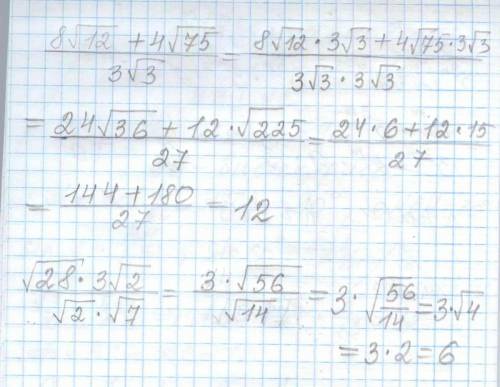 (8√12 + 4√75)/(3√3) = (8√12 · 3√3 + 4√75 · 3√3)/(3√3 · 3√3)
= (24√36 + 12 · √225)/27 = (24 · 6 + 12 · 15)/27
= (144 + 180)/27 = 12
(√28 · 3√2)/(√2 · √7) = (3 · √56)/√14 = 3 · √(56/14) = 3 · √4
= 3 · 2 = 6